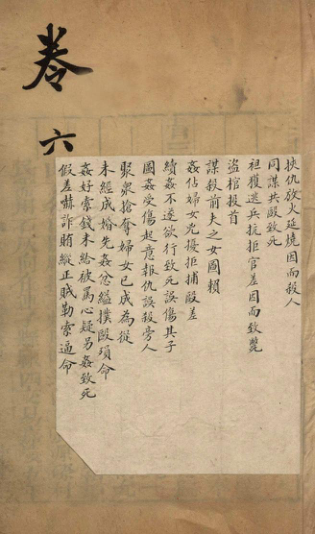 卷六
挾仇放火延燒因而殺人
同謀共毆致死
袒護逃兵抗拒官差因而致斃
盜棺投首
謀殺前夫之女圖賴
姦佔婦女先擾拒捕毆差
續姦不遂欲行致死誤傷其子
圖姦受傷起意報仇誤殺旁人
聚衆搶奪婦女已成為從
未經成婚先姦忿縊撲毆項命
姦好索錢未給被罵心疑另姦致死
假差嚇詐賄縱正賊勒索逼命